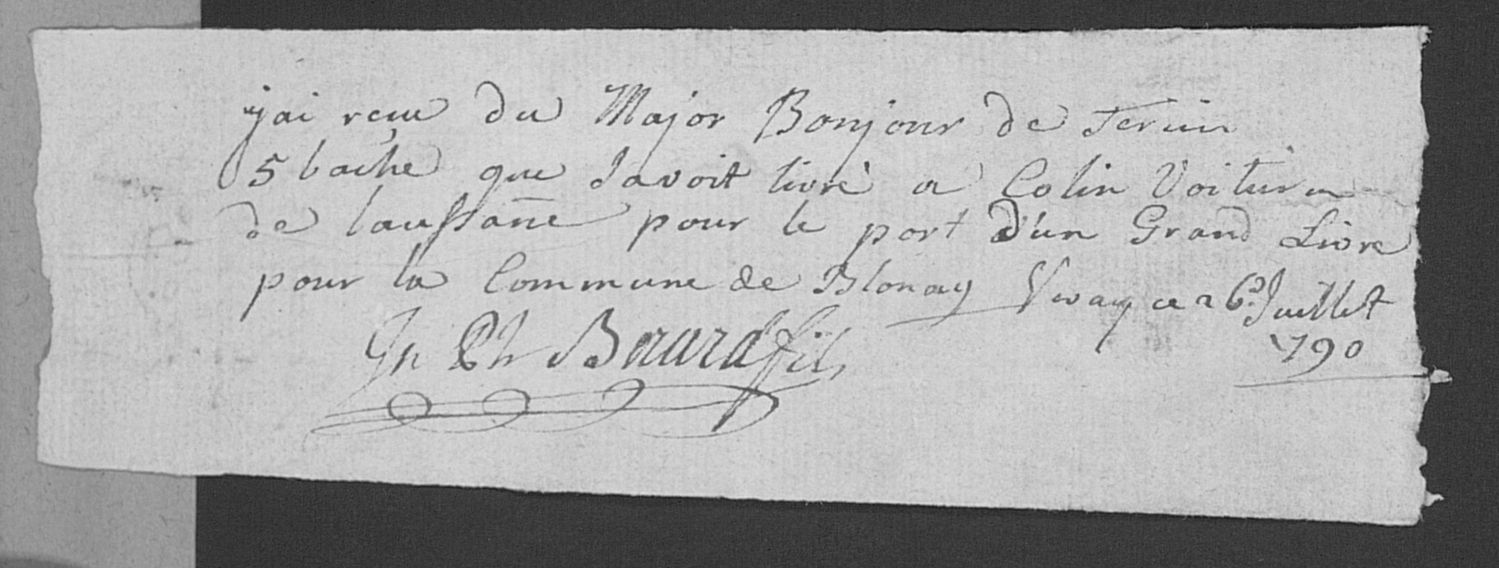 j'ai reçu du Major Bonjour de Tercier
5 bache que Javoit livré a Colin Voiturie
de Laussañe pour le port d'un Grand Livre
pour la Commune de Blonay Vivay ce 26e Juillet
1790
Jn Ph Bovard fils